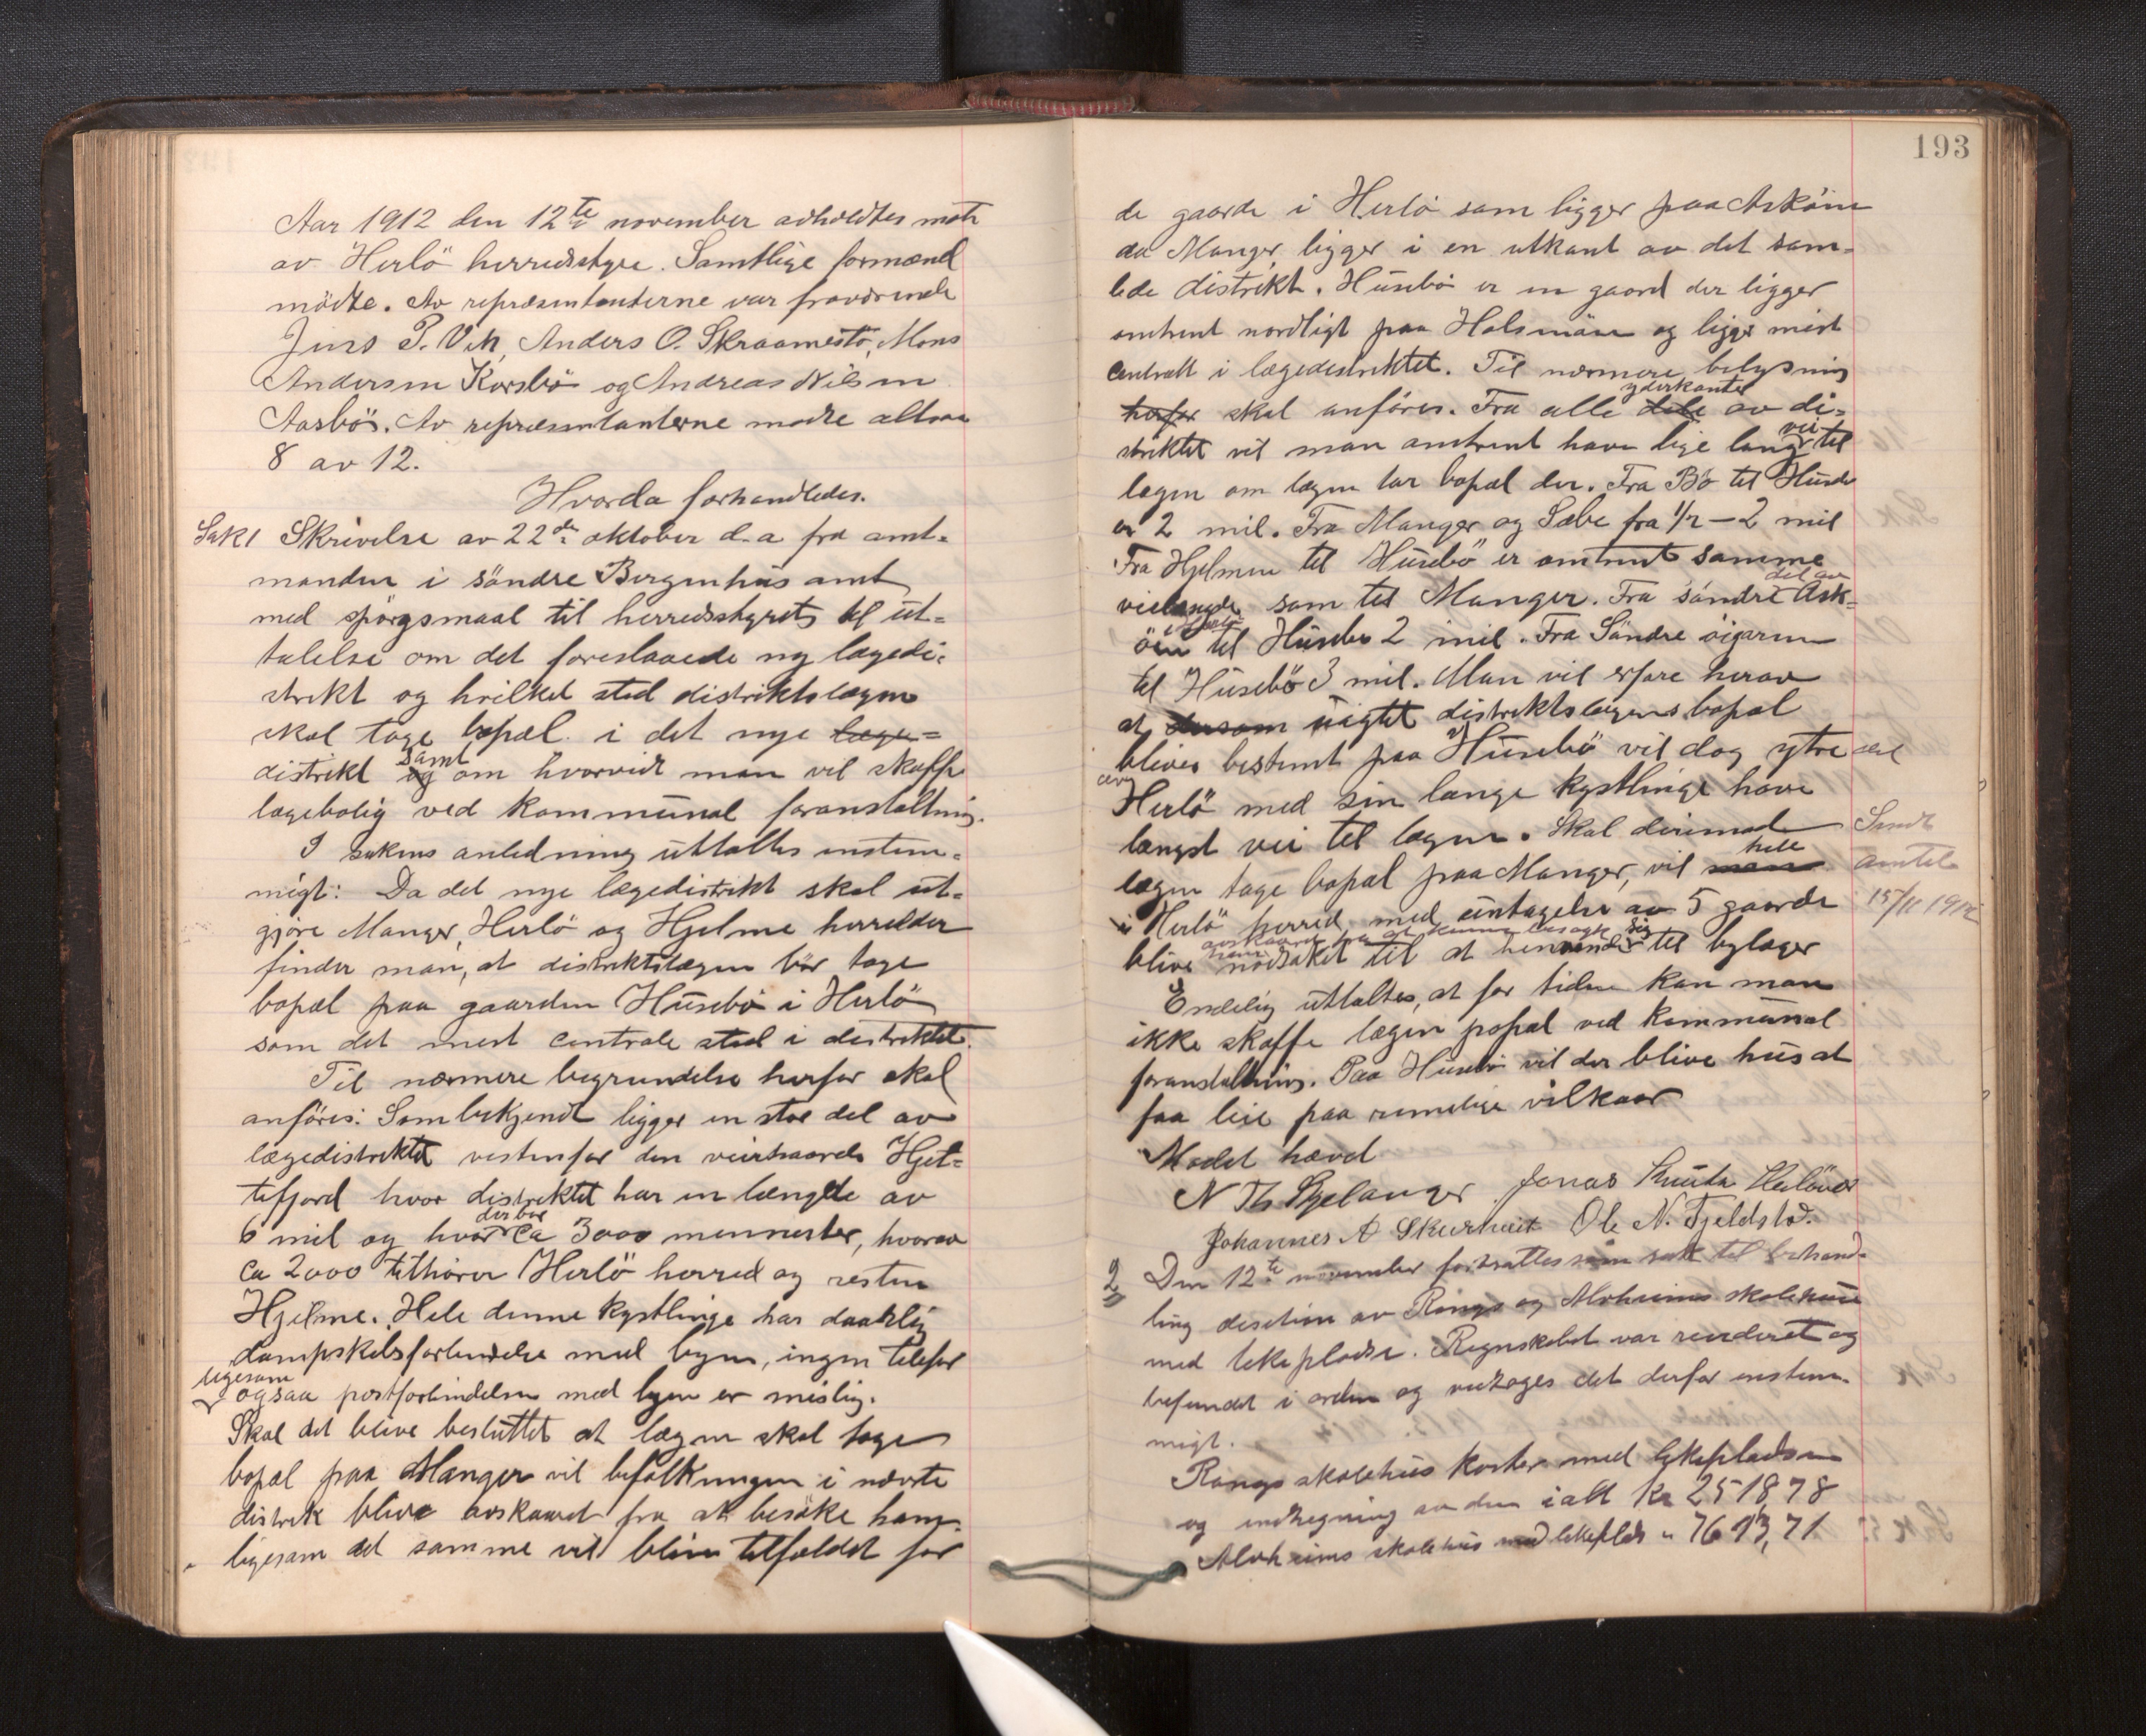 Aar 1912 den 12te november avholdtes möte
av Herlö herredsstyre. Samtlige formænd
mödte. Av repræsentanterne var fraværende
Jens P. Vik, Anders O. Skraamestö, Mons
Andersen Korsbö og Andreas Nilsen
Aasbö. Av repræsentanterne mødte altsaa
8 av 12.
Hvorda forhandledes.
Sak 1 Skrivelse av 22de oktober d.a fra amt-
manden i söndre Bergenhus amt
med spörgsmaal til herredsstyrets ut-
talelse om det foreslaaede ny lægedi-
strikt og hvilket sted distriktslægen
skal tage bopæl i det nye læge-
distrikt og samt om hvorvidt man vil skaffe
lægebolig ved kommunal foranstaltning.
I sakens anledning uttaltes enstem-
migt: Da det nye lægedistrikt skal ut-
gjøre Manger, Herlö og Hjelme herreder
finder man, at distriktslægen bör tage
bopæl paa gaarden Husebö i Herlö
som det mest centrale sted i distriktet.
Til nærmere begrundelse herfor skal
anföres: Som bekjendt ligger en stor del av
lægedistriktet vestenfor den veirhaarde Hjel-
tefjord hvor distriktet har en længde av
6 mil og hvor der bor ca 3000 mennesker, hvorav
ca 2000 tilhører Herlö herred og resten
Hjelme. Hele denne kystlinje har daarlig
dampskibsforbindelse med byen, ingen telefon
ligesom ogsaa postforbindelsen med byen er mislig.
Skal det blive besluttet at lægen skal tage
bopæl paa Manger vil befolkningen i nævnte
distrik blive avskaaret fra at besöke ham
ligesom det samme vil blive tilfældet for
193
de gaarde i Herlö som ligger paa Asköen
da Manger ligger i en utkant av det sam-
lede distrikt. Husebö er en gaard der ligger
omtrent nordligt paa Holsenöen og ligger mest
centralt i lægedistriktet. Til nærmere belysning
herfor skal anföres. Fra alle dele yderkanter av di-
striktet vil man omtrent have lige lang vei til
lægen om lægen tar bopæl der. Fra Bö til Husebö
er 2 mil. Fra Manger og Sæbø fra 1/2 – 2 mil
Fra Hjelmen til Husebö er omtrent samme
veilængde som til Manger. Fra söndre del av Ask-
öen til Husebö 2 mil. Fra Söndre öigaren
til Husebö 3 mil. Man vil erfare herav
at dersom distriktslægens bopæl
blives bestemt paa Husebö vil dog ytre del
av Herlö med sin lange kystlinje have
længst vei til lægen. Skal derimod
lægen tage bopæl paa Manger, vil man hele
i Herlö herred med undtagelse av 5 gaarde
blive avskaaret fra at kunne besøge ham nödsaket til at henvende sig til bylæger
Sendt
amtet
15/11 1912
Endelig uttaltes, at for tiden kan man
ikke skaffe lægen popæl ved kommunal
foranstaltning. Paa Husebö vil der blive hus at
faa leie paa rimelige vilkaar
Mødet hævet
N Th Gjelanger Jonas Knuts Herlöver
Johannes A Skurtveit Ole N. Fjeldstad.
2 Den 12te november fortsattes som sak til behand-
ling desition av Rongs og Alvheims skolehuse
med lekepladse. Regnskabet var revideret og
befundet i orden og vedtoges det derfor enstem-
migt.
Rongs skolehus koster med lekepladsen
og indhegning av den ialt kr 2518,78
Alvheims skolehus med lekeplads " 7613,71